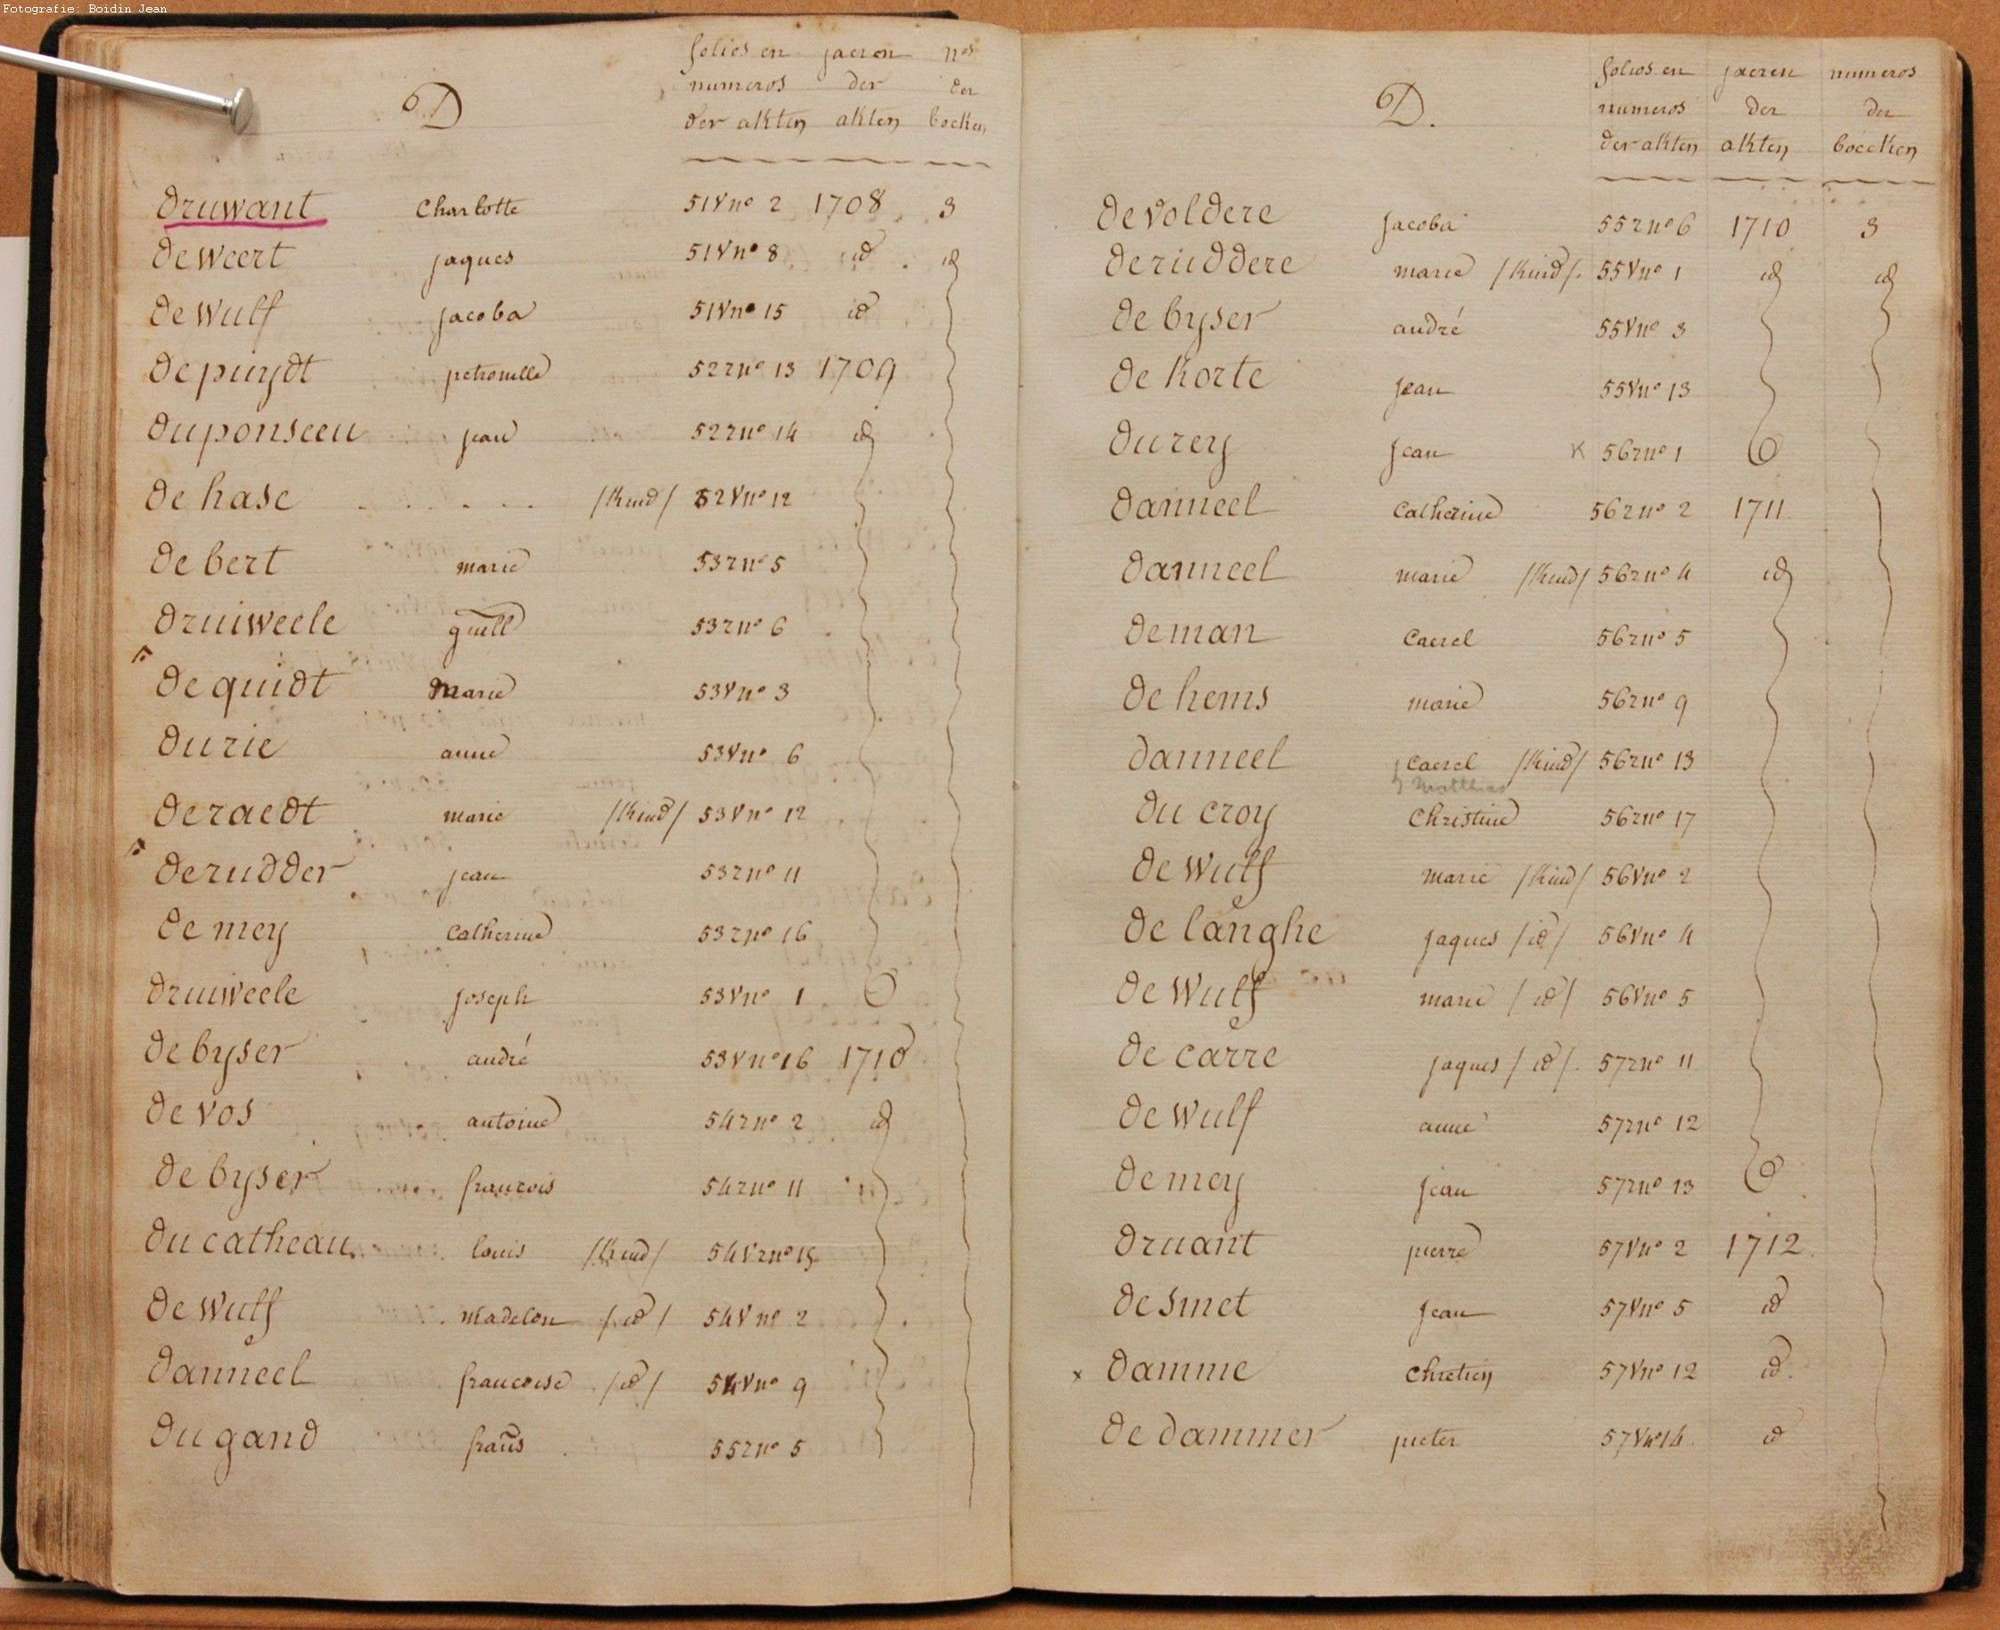 Fotografie: Boidin Jean
D
folios en jaeren nos
numeros der der
der akten akten boeken
druwant Charlotte 51V no 2 1708 3
de weert jaques 51V no 8 id id
de wulf jacoba 51V no 15 id
de puydt petronelle 52r no 13 1709
duponseeu jean 52r no 14 id
de hase . . . . . /Kind/ 52V no 12
de bert marie 53r no 5
druiweele guill 53r no 6
de quidt Marie 53V no 3
durie anne 53V no 6
de raedt marie /Kind/ 53V no 12
de rudder jean 53r no 11
de mey Catherine 53r no 16
druiweele joseph 53V no 1
de byser andré 53V no 16 1710
de vos antoine 54r no 2 id
de byser francois 54r no 11
du catheau louis /Kind/ 54Vr no 15
de wulf Madelon /id/ 54V no 2
danneel francoise /id/ 54V no 9
du gand frans 55r no 5
D.
folios en jaeren numeros
numeros der der
der akten akten boecken
de voldere jacoba 55r no 6 1710 3
de ruddere marie /Kind/. 55V no 1 id id
de byser andré 55V no 3
de Korte jean 55V no 13
du rey jean x 56r no 1
danneel Catherine 56r no 2 1711
danneel marie /Kind/ 56r no 4 id
de man Caerel 56r no 5
de hems marie 56r no 9
danneel Caerel /Kind/ 56r no 13
Matthias
du croy Christine 56r no 17
de wulf marie /Kind/ 56V no 2
de langhe jaques /id/ 56V no 4
de wulf marie /id/ 56V no 5
de carre jaques /id/. 57r no 11
de wulf anne 57r no 12
de mey jean 57r no 13
druant pierre 57V no 2 1712
de smet jean 57V no 5 id
x damme Chretien 57V no 12 id
de dammer pieter 57V no 14 id